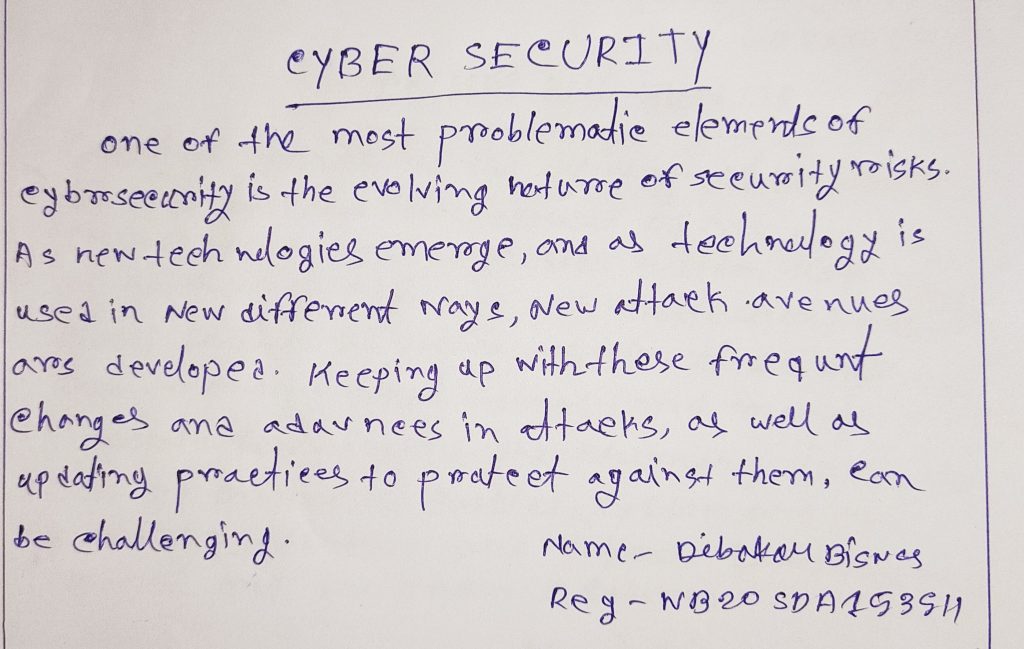 CYBER SECURITY
one of the most problematic elements of
cybersecurity is the evolving nature of security risks.
As new technologies emerge, and as technology is
used in New different ways, New attack avenues
are developed. Keeping up with these frequnt
changes and advances in attacks, as well as
updating practices to protect against them, can
be challenging.
Name - Debakar Biswas
Reg - WB20SDA